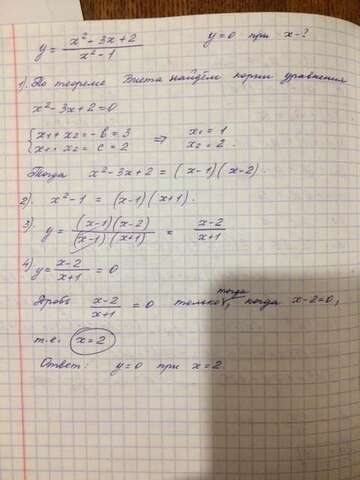 y = (x² - 3x + 2)/(x² - 1) y=0 при x-?
1) По теореме Виета найдём корни уравнения
x² - 3x + 2 = 0
{x₁ + x₂ = -b = 3 ⇒ x₁ = 1
{x₁ · x₂ = c = 2 x₂ = 2.
Тогда x² - 3x + 2 = (x-1)(x-2).
2). x² - 1 = (x-1)(x+1).
3) y = (x-1)(x-2)/(x-1)(x+1) = (x-2)/(x+1)
4) y = (x-2)/(x+1) = 0
Дробь (x-2)/(x+1) = 0 только тогда, когда x-2=0,
т.е. x=2
Ответ: y=0 при x=2.